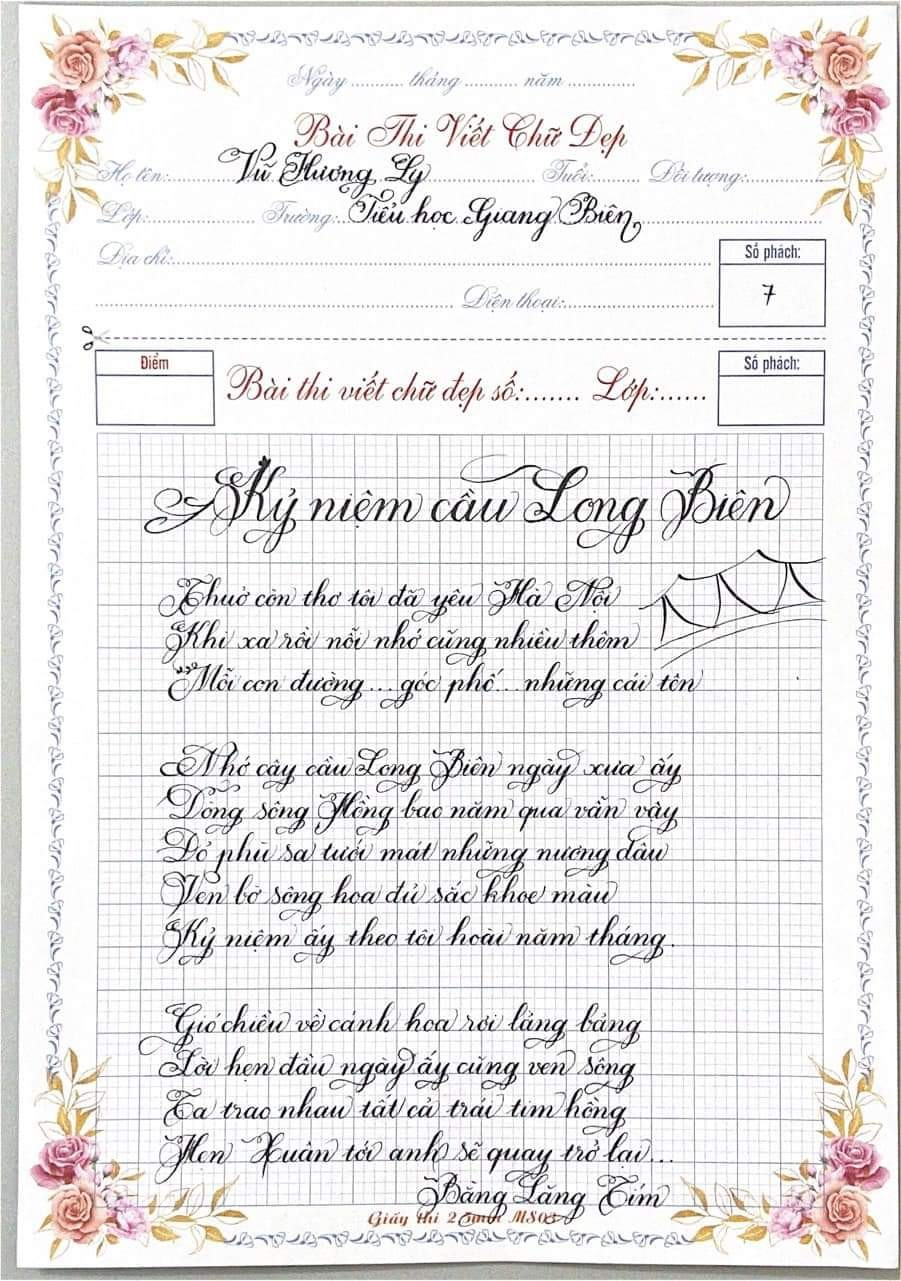 Ngày ........... tháng .......... năm .............
Bài Thi Viết Chữ Đẹp
Họ tên:.......... Vũ Hương Ly .......... Tuổi:......... Đối tượng:..............
Lớp:................... Trường: Tiểu học Giang Biên..............
Địa chỉ:..............
Số phách:
7
.............. Điện thoại:..............
Điểm
Bài thi viết chữ đẹp số:....... Lớp:......
Số phách:
Kỷ niệm cầu Long Biên
Thuở còn thơ tôi đã yêu Hà Nội
Khi xa rồi nỗi nhớ cũng nhiều thêm
Mỗi con đường...góc phố...những cái tên
Nhớ cây cầu Long Biên ngày xưa ấy
Dòng sông Hồng bao năm qua vẫn vậy
Đỏ phù sa tưới mát những nương dâu
Ven bờ sông hoa đủ sắc khoe màu
Kỷ niệm ấy theo tôi hoài năm tháng.
Gió chiều về cánh hoa rơi lảng bảng
Lời hẹn đầu ngày ấy cũng ven sông
Ta trao nhau tất cả trái tim hồng
Hẹn Xuân tới anh sẽ quay trở lại...
Bằng Lăng Tím
Giấy thi 2.5mm MS03